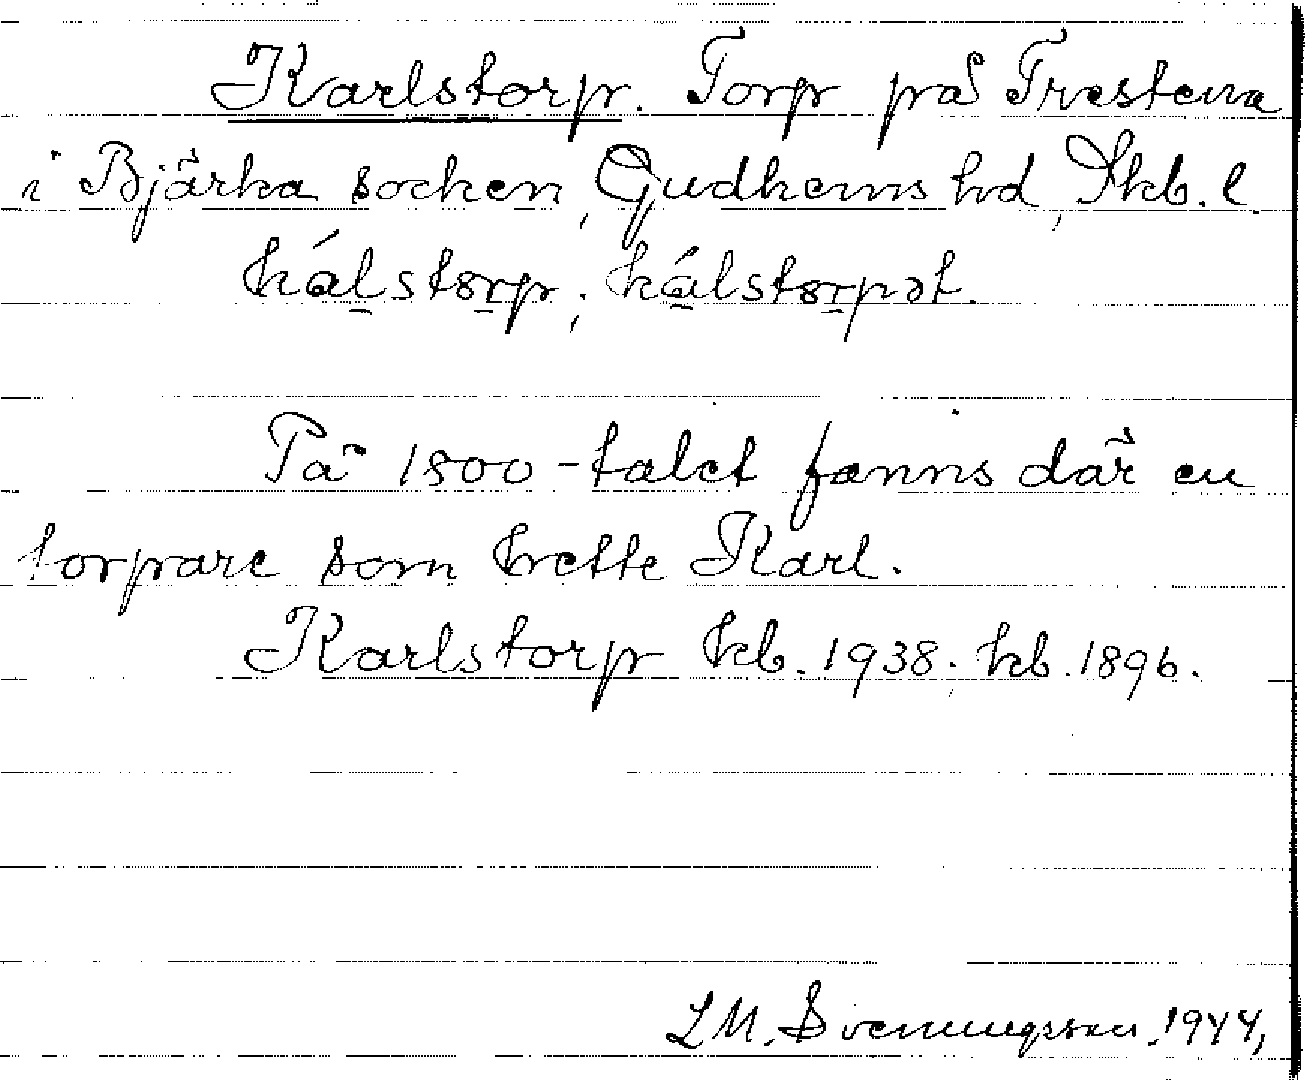 Karlstorp. Torp på Trestena
i Bjärka socken, Gudhems hd, Skb. l.
kálstorp; kálstorpət.
På 1800-talet fanns där en
torpare som hette Karl.
Karlstorp kb. 1938; kb. 1896.
L M. Svenungsson. 1944,